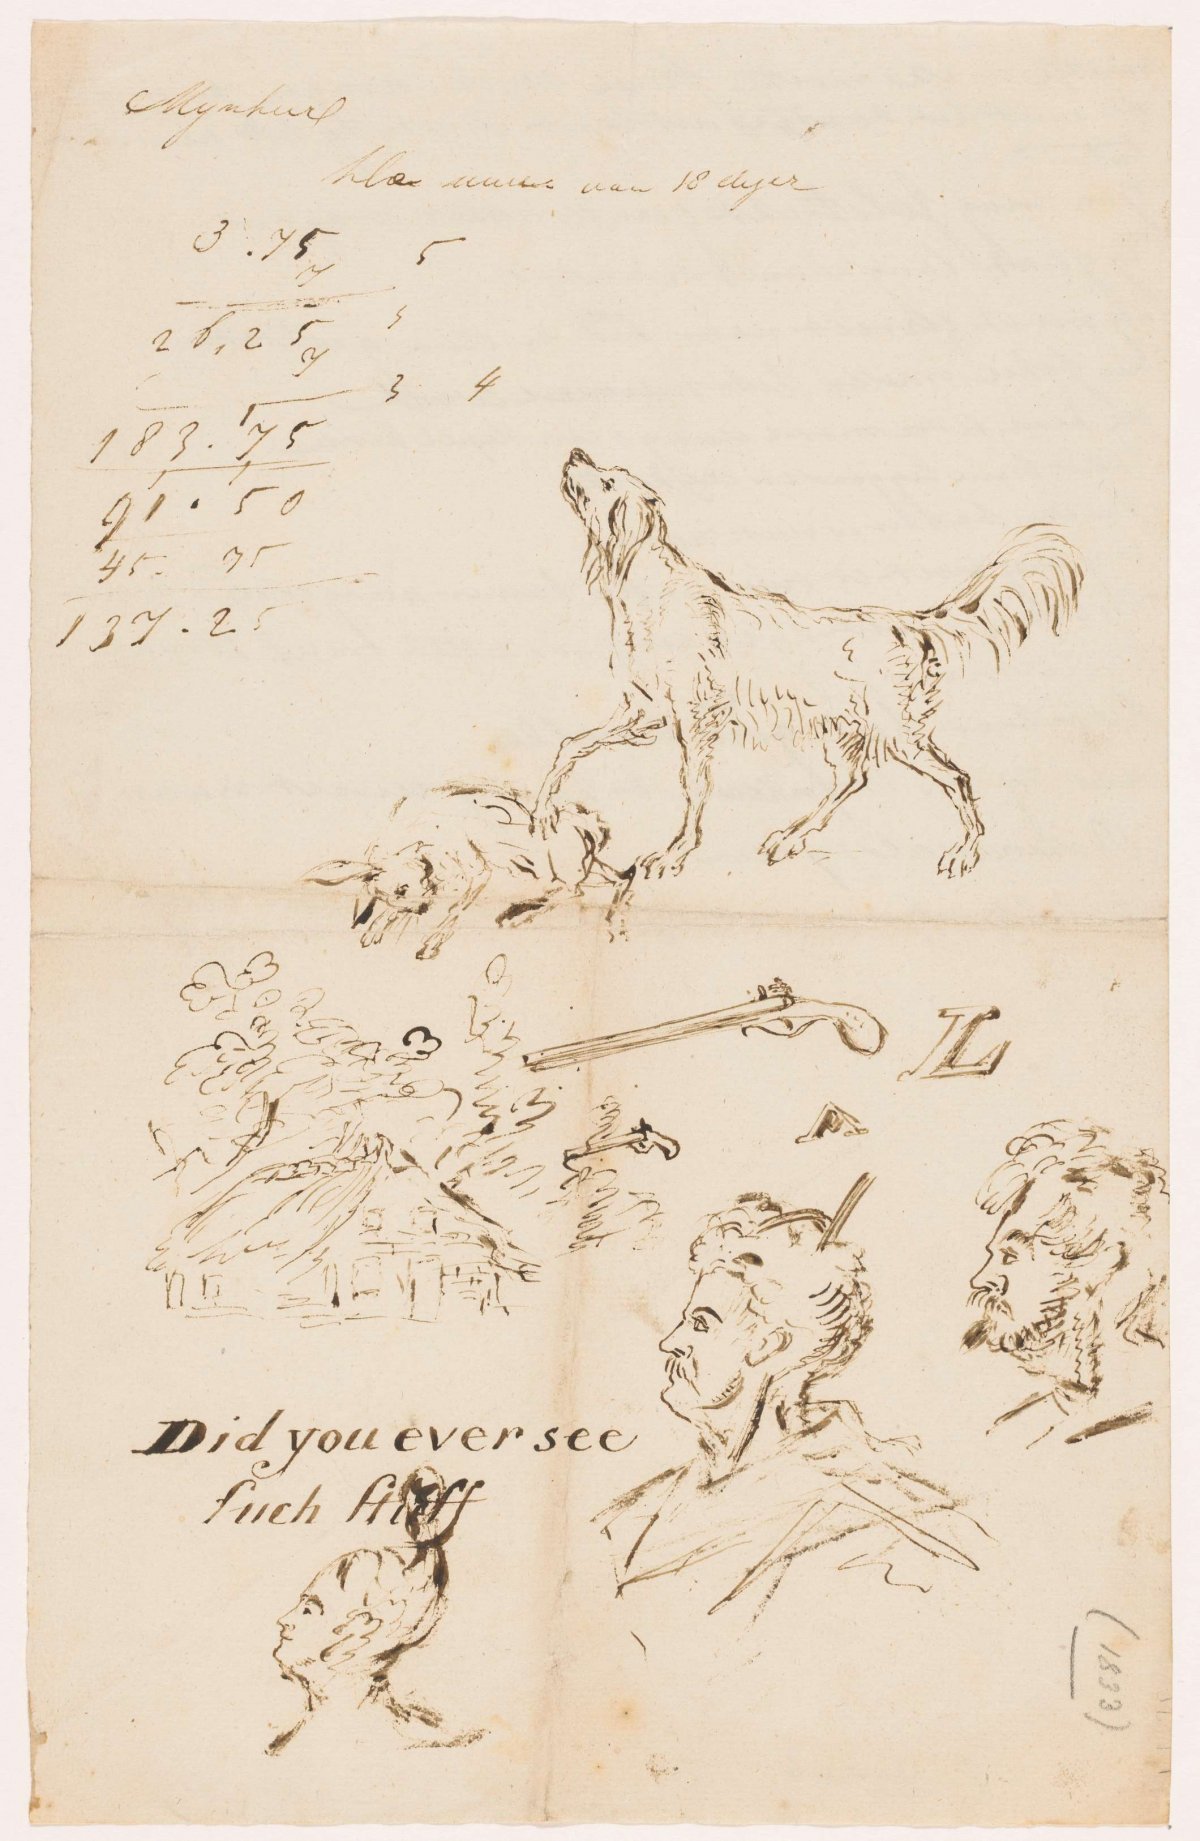 Mynheer
van 18
3.75 5
7
26,25 5
7
3 4
183.75
91.50
45.75
137.25
L
Did you ever see
ſuch ſtuff
(1833)